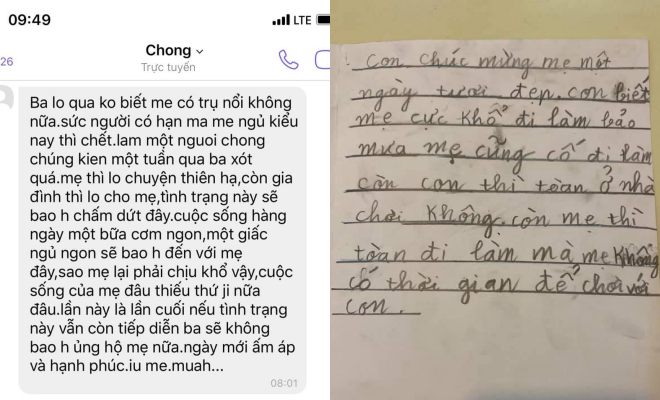 09:49
LTE
26
Chong
Trực tuyến
Ba lo qua ko biết me có trụ nổi không
nữa.sức người có hạn ma me ngủ kiểu
nay thì chết.lam một nguoi chong
chúng kien một tuần qua ba xót
quá.mẹ thì lo chuyện thiên hạ,còn gia
đình thì lo cho mẹ,tình trạng này sẽ
bao h chấm dứt đây.cuộc sống hàng
ngày một bữa cơm ngon,một giấc
ngủ ngon sẽ bao h đến với mẹ
đây,sao mẹ lại phải chịu khổ vậy,cuộc
sống của mẹ đâu thiếu thứ ji nữa
đâu.lần này là lần cuối nếu tình trạng
này vẫn còn tiếp diễn ba sẽ không
bao h ủng hộ mẹ nữa.ngày mới ấm áp
và hạnh phúc.iu me.muah...
08:01
Con chúc mừng mẹ một
ngày tươi đẹp. con biết
mẹ cực khổ đi làm bảo
mưa mẹ cũng cố đi làm
còn con thì toàn ở nhà
chơi không. còn mẹ thì
toàn đi làm mà mẹ không
có thời gian để chơi với
con.